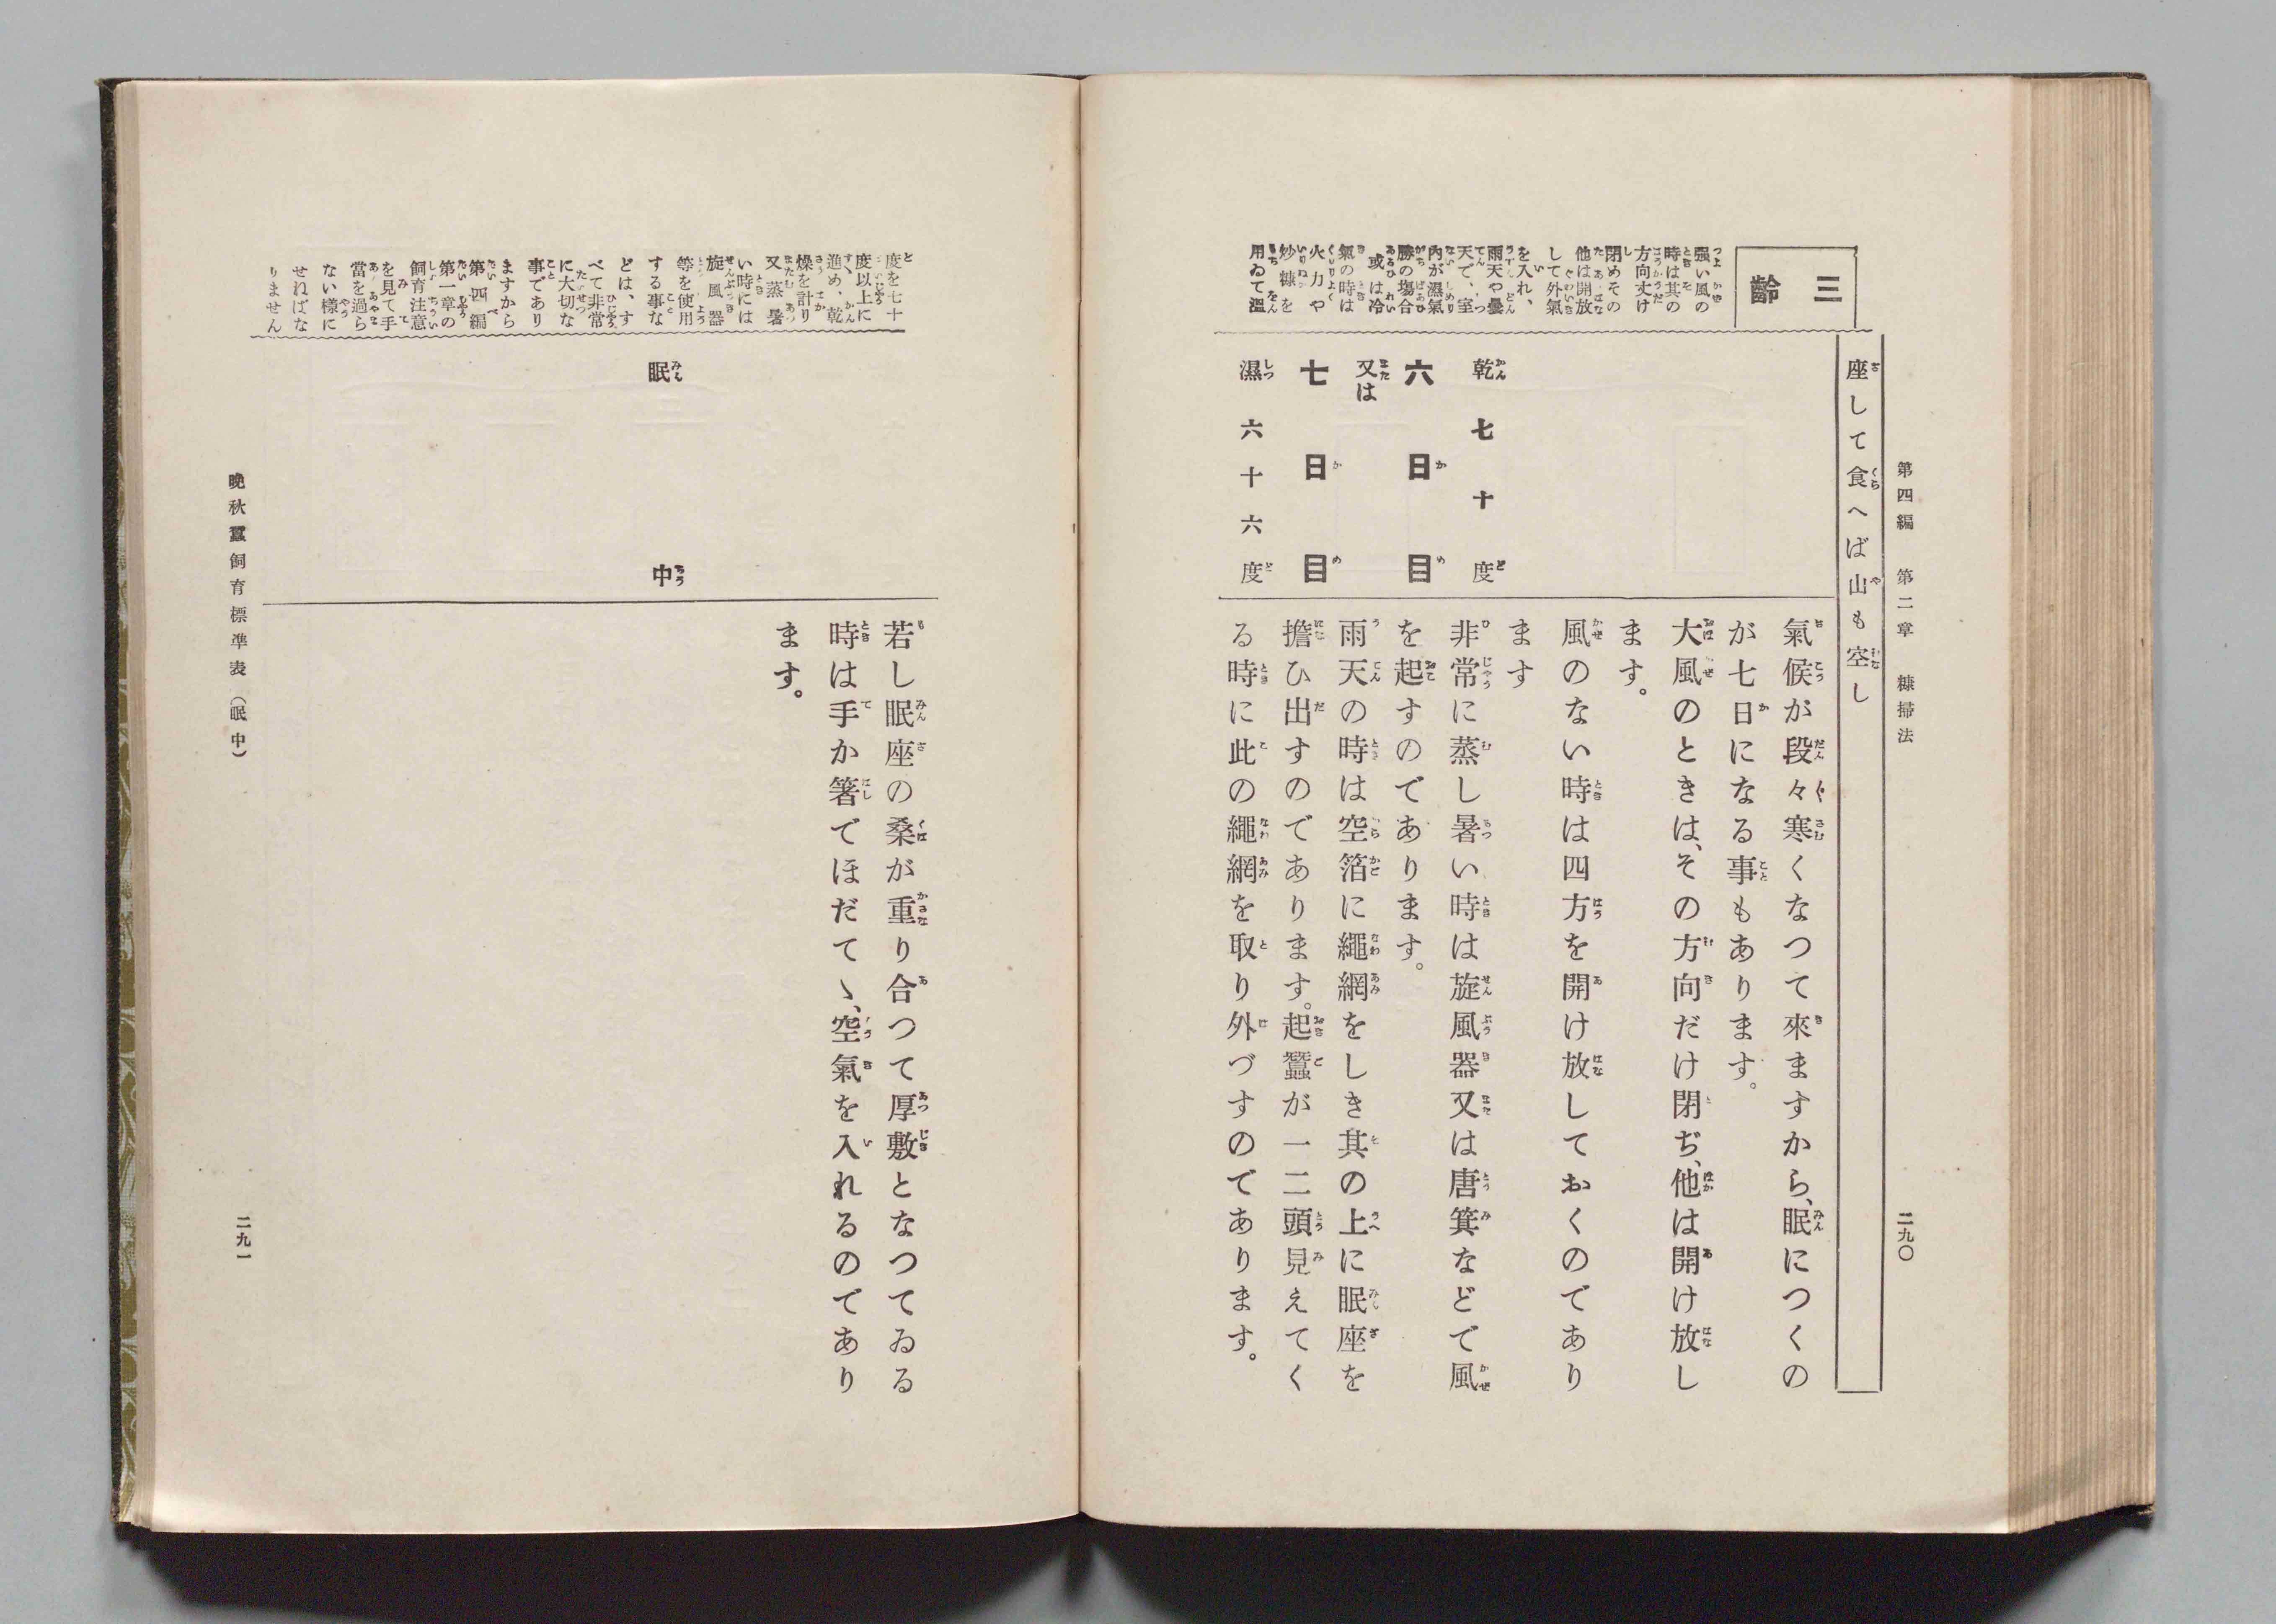 第四編 第二章 糠掃法
二九〇
座して食へば山も空し
三齡
强い風の
時は其の
方向丈け
閉めその
他は開放
して外氣
を入れ、
雨天や曇
天で、室
內が濕氣
勝の場合
或は冷
氣の時は
火力や
炒糠を
用ゐて溫
乾七十度
六日目
又は
七日目
濕六十六度
氣候が段々寒くなつて來ますから、眠につくの
が七日になる事もあります。
大風のときは、その方向だけ閉ぢ、他は開け放し
ます。
風のない時は四方を開け放しておくのであり
ます
非常に蒸し暑い時は旋風器又は唐箕などで風
を起すのであります。
雨天の時は空箔に繩網をしき其の上に眠座を
擔ひ出すのであります。起蠶が一二頭見えてく
る時に此の繩網を取り外づすのであります。
度を七十
度以上に
進め、乾
燥を計り
又蒸暑
い時には
旋風器
等を使用
する事な
どは、す
べて非常
に大切な
事であり
ますから
第四編
第一章の
飼育注意
を見て手
當を過ら
ない樣に
せねばな
りません
眠中
若し眠座の桑が重り合つて厚敷となつてゐる
時は手か箸でほだてゝ、空氣を入れるのであり
ます。
晚秋蠶飼育標準表(眠中)
二九一